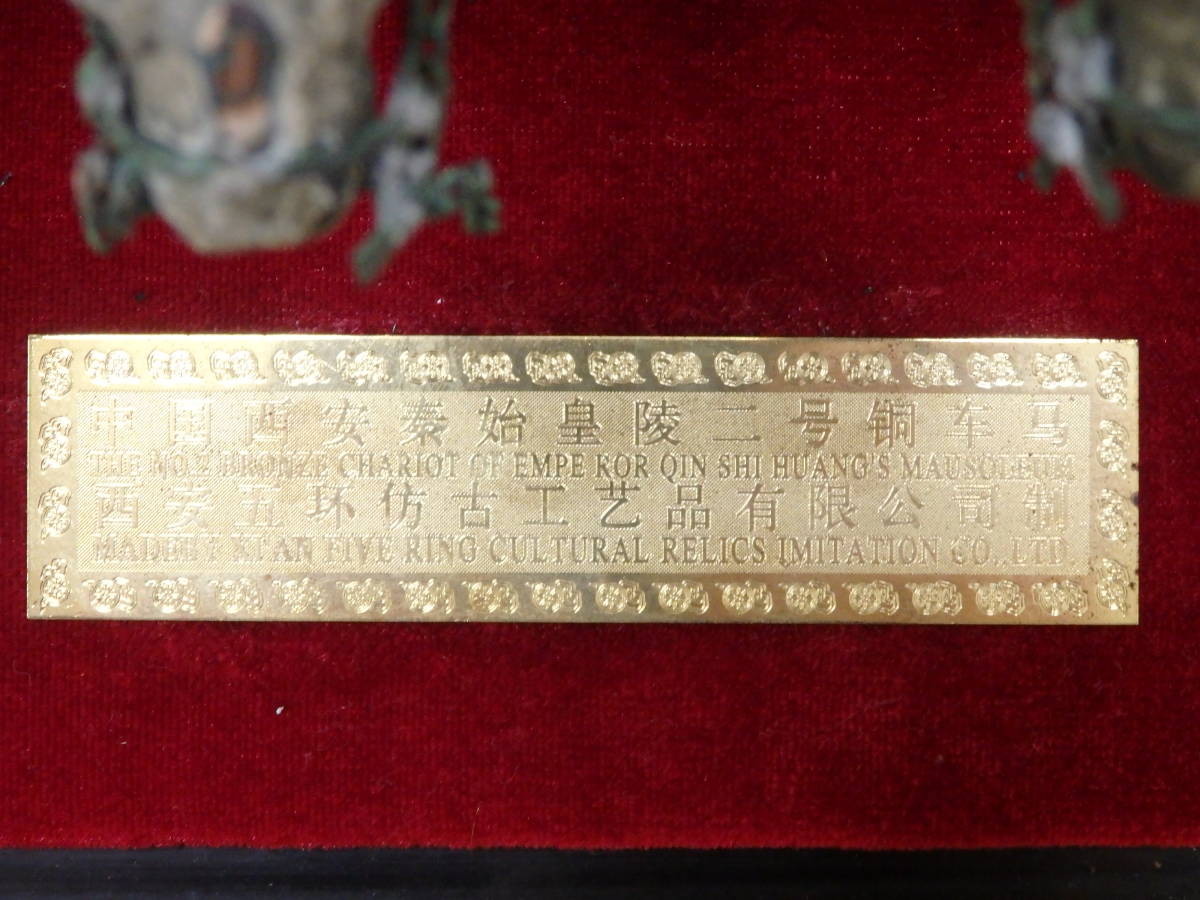 中国西安秦始皇陵二号铜车马
THE NO.2 BRONZE CHARIOT OF EMPE ROR QIN SHI HUANG'S MAUSOLEUM
西安五环仿古工艺品有限公司制
MADE BY XI'AN FIVE RING CULTURAL RELICS IMITATION CO.,LTD